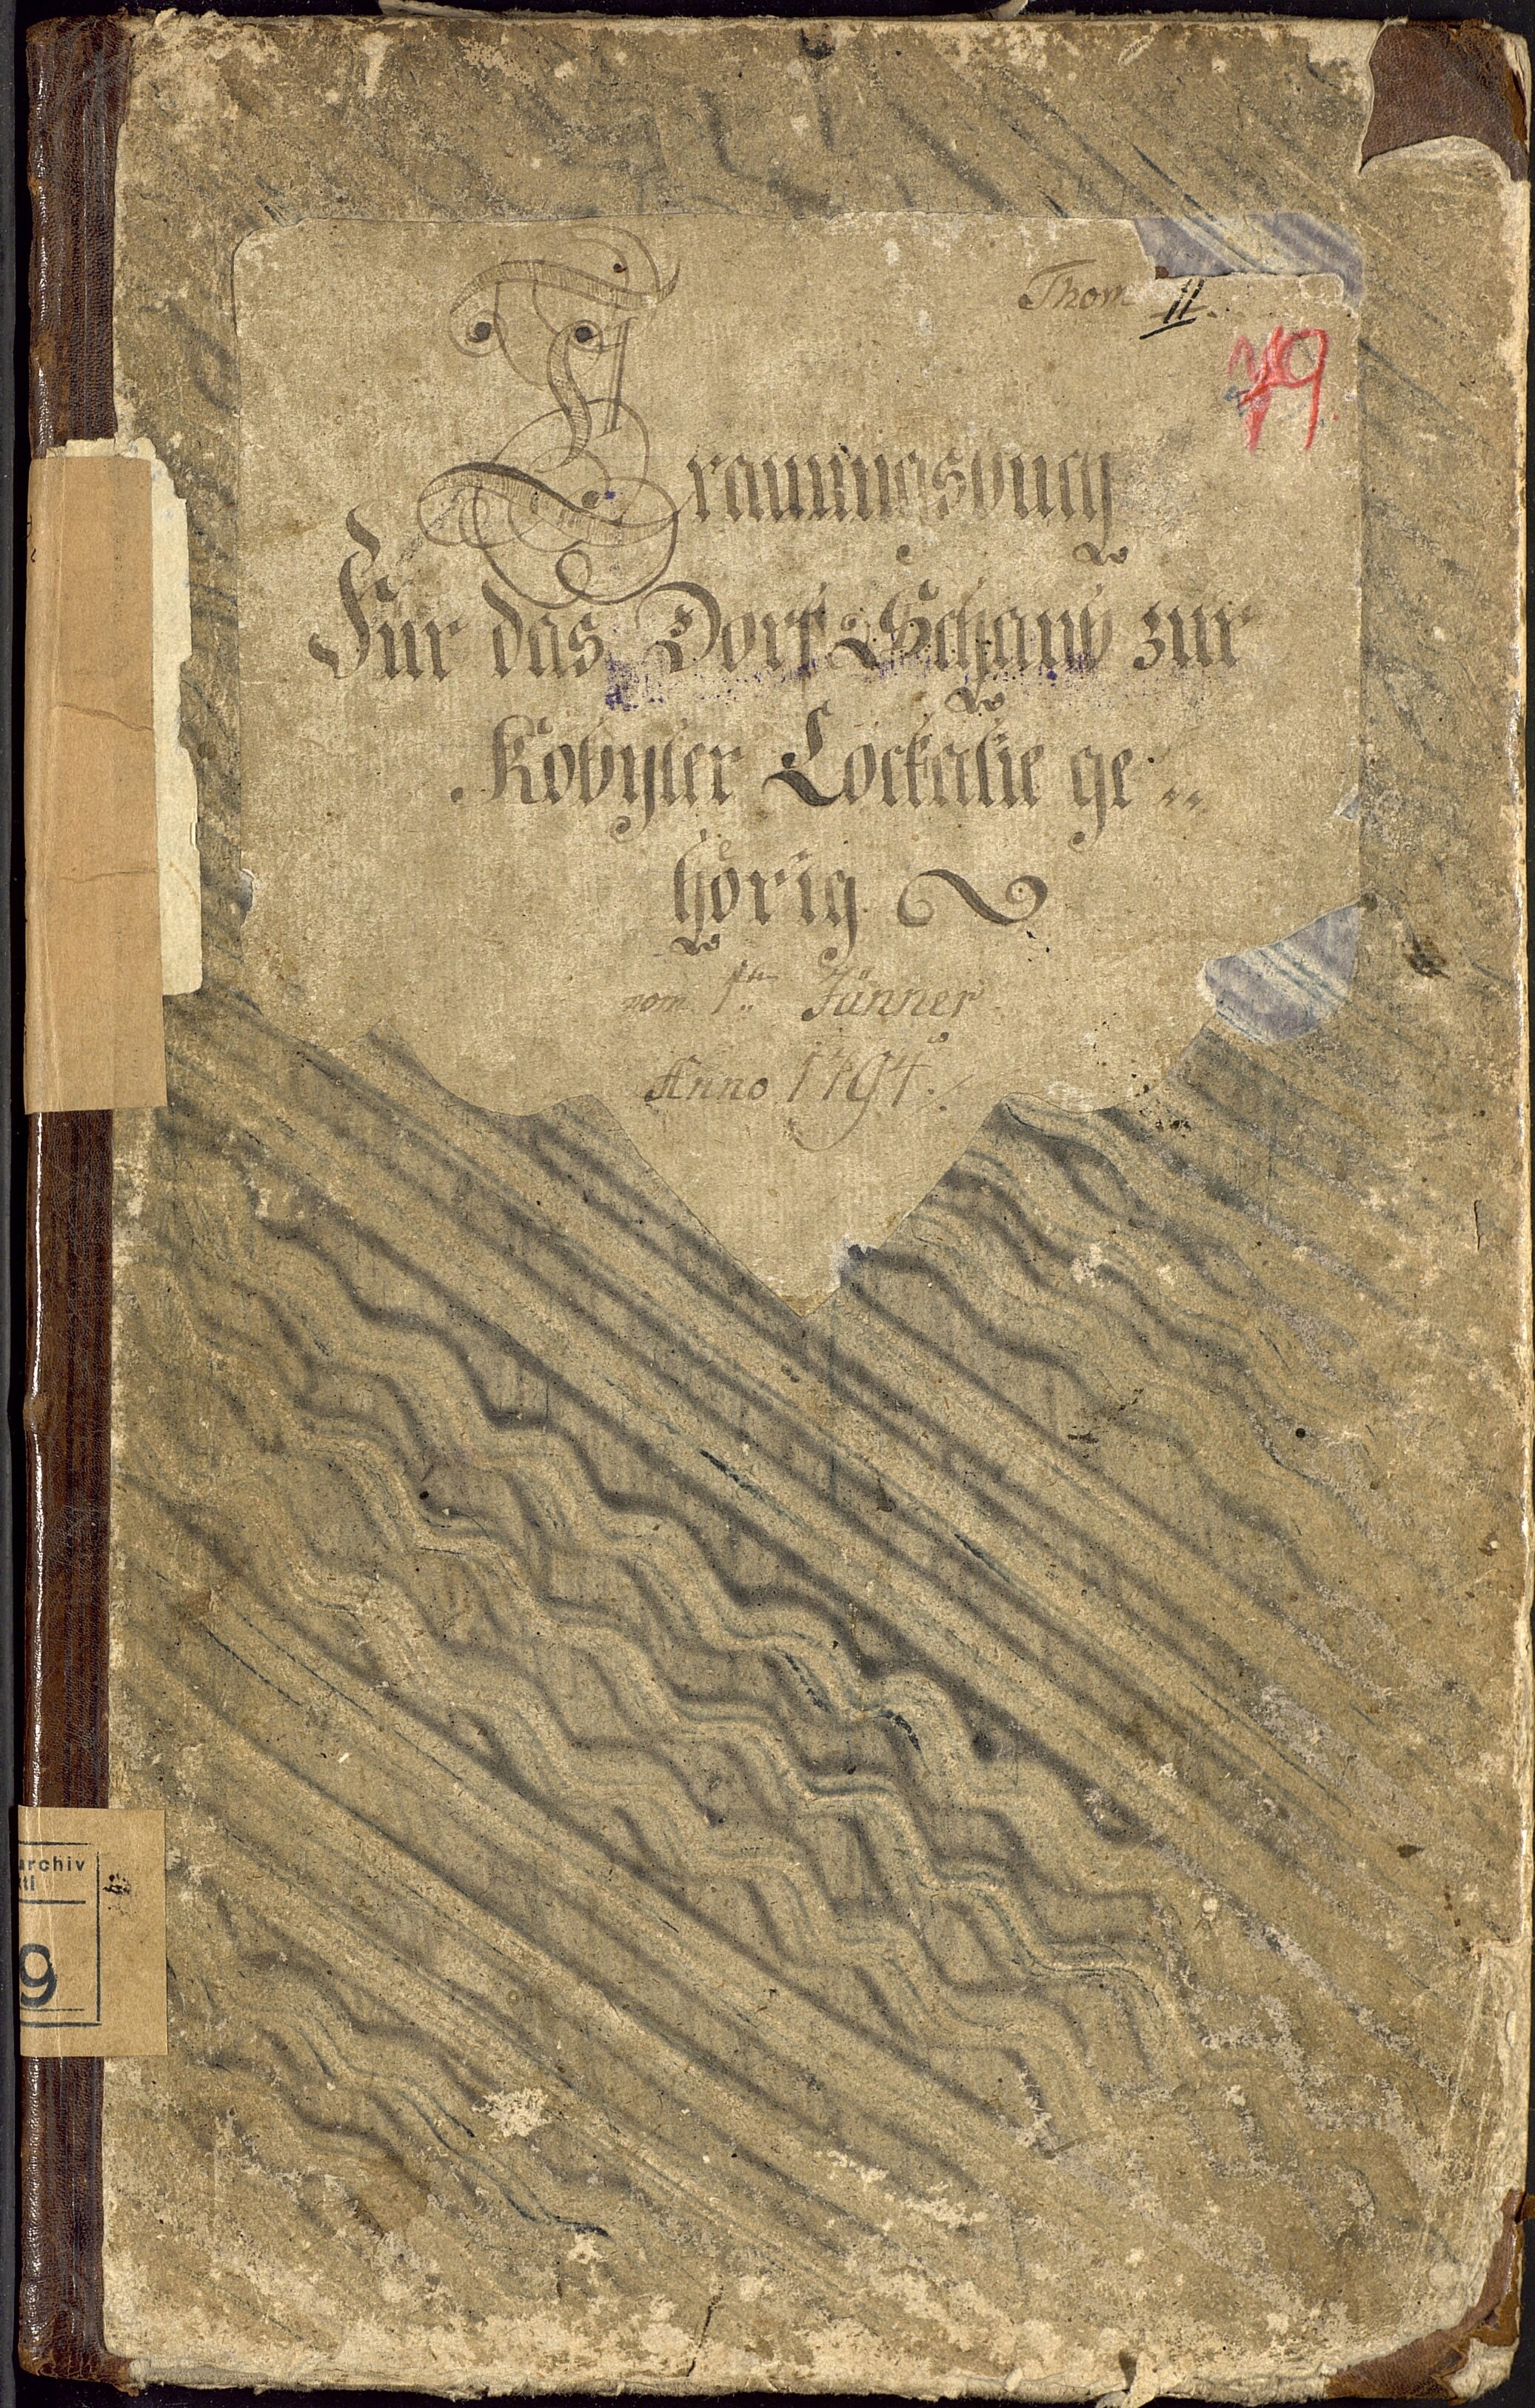 Thom II.
79.
Trauungsbuch
Für das Dorf Schanb zur
Kobyler Lockalie ge„
hörig
vom 1ten Jänner
Anno 1794.
archiv
ti
9